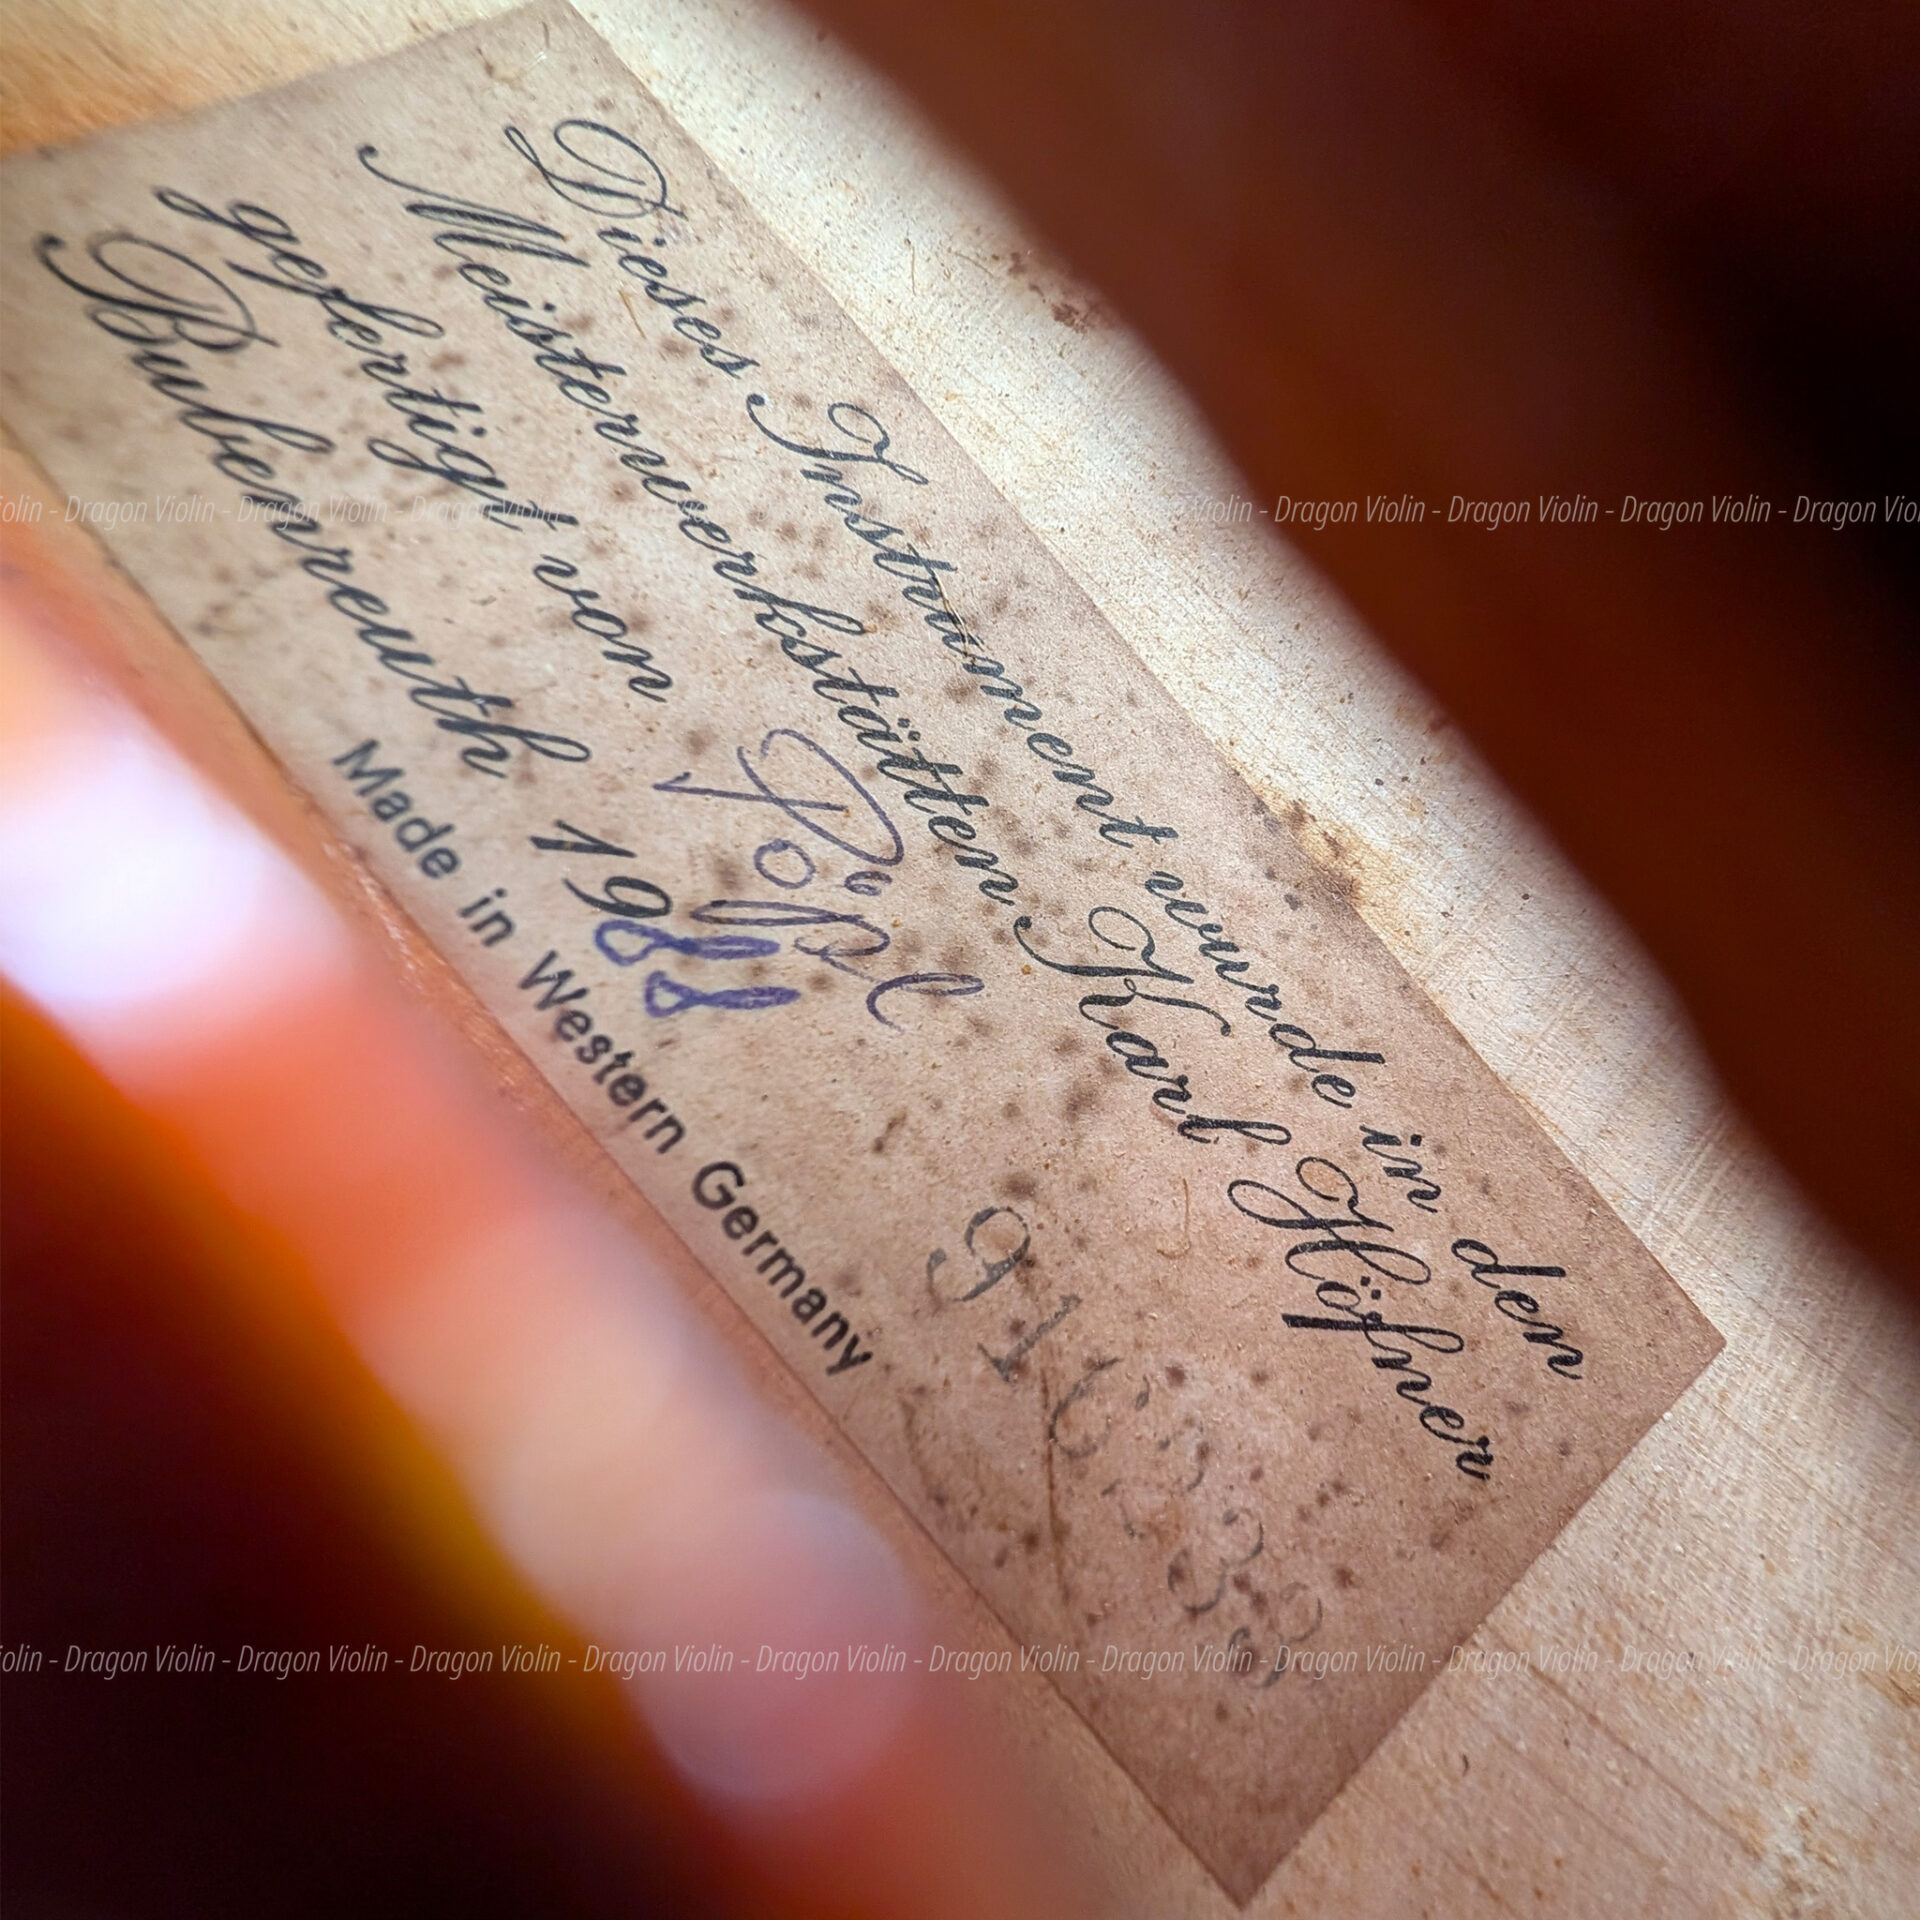 Dieses Instrument wurde in den
Meisterwerkstätten Karl Höfner
gefertigt von
Bubenreuth 1988
Made in Western Germany
Dragon Violin - Dragon Violin - Dragon Violin - Dragon Violin - Dragon Violin - Dragon Violin - Dragon Violin
Dragon Violin - Dragon Violin - Dragon Violin - Dragon Violin - Dragon Violin - Dragon Violin - Dragon Violin - Dragon Violin - Dragon Violin - Dragon Violin - Dragon Violin